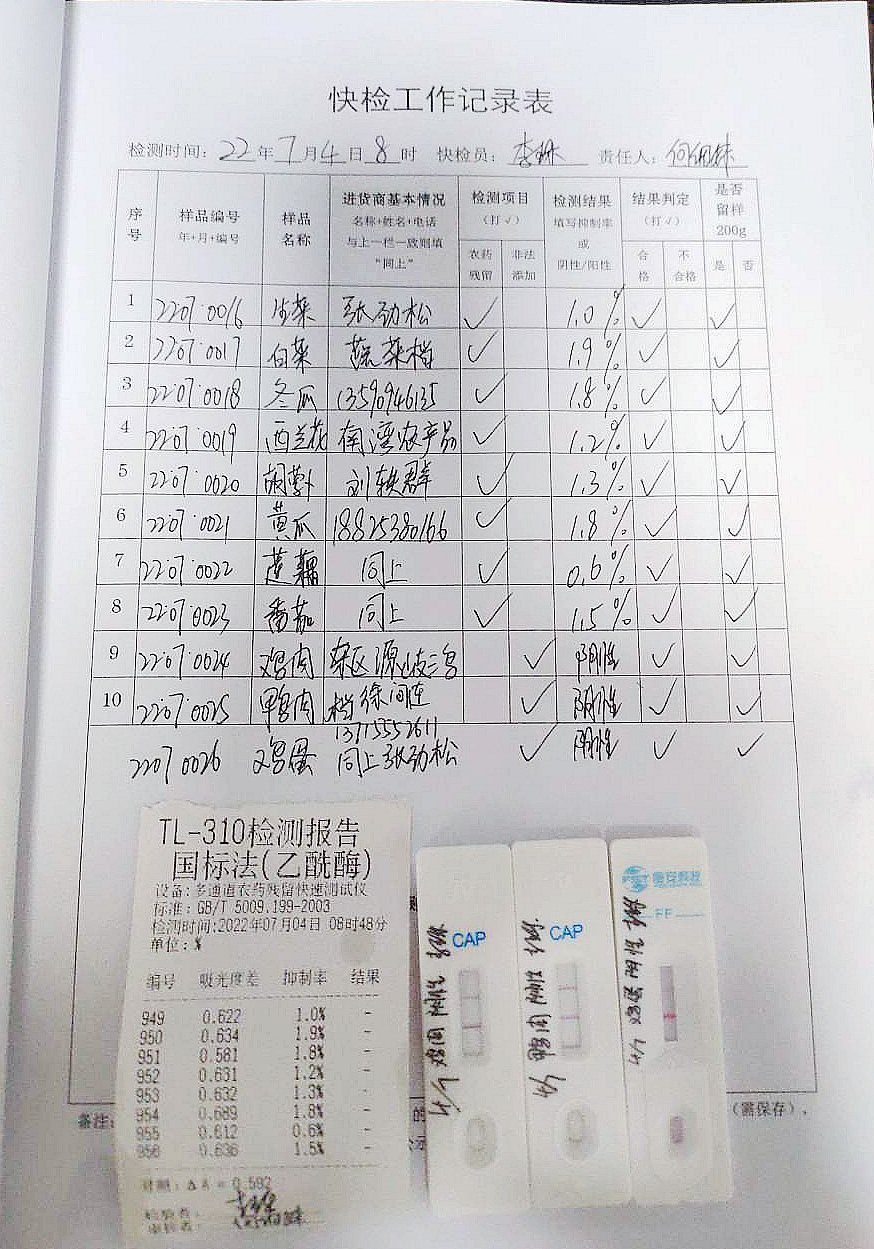 快检工作记录表
检测时间：22年7月4日8时 快检员： 责任人：
序号 样品编号 年+月+编号 样品名称 进货商基本情况 名称+姓名+电话 与上一栏一致则填“同上” 检测项目（打√） 农药残留 非法添加 检测结果 填写抑制率或阴性/阳性 结果判定（打√） 合格 不合格 是否留样200g 是 否
1 2207·0016 张劲松 √ 1.0% √ √
2 2207·0017 白菜 蔬菜档 √ 1.9% √ √
3 2207·0018 冬瓜 13590946135 √ 1.8% √ √
4 2207·0019 西兰花 南湾农产品 √ 1.2% √ √
5 2207·0020 胡萝卜 刘轶群 √ 1.3% √ √
6 2207·0021 黄瓜 18825380166 √ 1.8% √ √
7 2207·0022 莲藕 同上 √ 0.6% √ √
8 2207·0023 番茄 同上 √ 1.5% √ √
9 2207·0024 鸡肉 √ 阴性 √ √
10 2207·0025 鸭肉 档 √ 阴性 √ √
13715552611
2207 0026 鸡蛋 同上张劲松 √ 阴性 √ √
TL-310检测报告
国标法(乙酰酶)
设备:多通道农药残留快速测试仪
标准: GB/T 5009.199-2003
检测时间:2022年07月04日 08时48分
单位:%
编号 吸光度差 抑制率 结果
949 0.622 1.0% -
950 0.634 1.9% -
951 0.581 1.8% -
952 0.631 1.2% -
953 0.632 1.3% -
954 0.689 1.8% -
955 0.612 0.6% -
956 0.636 1.5% -
对照: ΔA = 0.592
检验者:
审核者:
CAP
CAP
FF
备注:
的
（需保存）.
公示